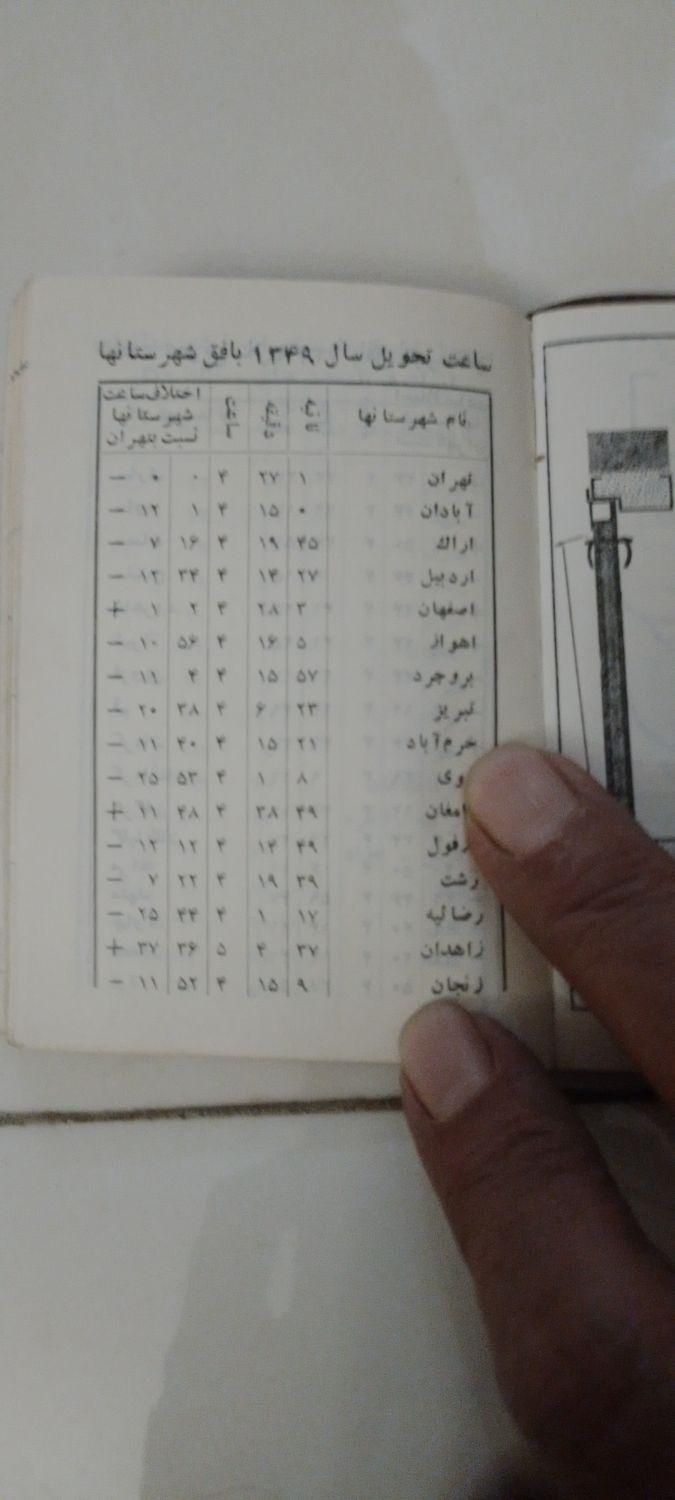 ساعت تحویل سال ۱۳۴۹ بافق شهرستانها
نام شهرستانها ثانیه دقیقه ساعت اختلاف ساعت شهرستانها نسبت بتهران
تهران ۱ ۲۷ ۴ ۰ ۰ −
آبادان ۰ ۱۵ ۴ ۱ ۱۲ −
اراك ۴۵ ۱۹ ۴ ۱۶ ۷ −
اردبیل ۲۷ ۱۴ ۴ ۳۴ ۱۲ −
اصفهان ۳ ۲۸ ۴ ۲ ۱ +
اهواز ۵ ۱۶ ۴ ۵۶ ۱۰ −
بروجرد ۵۷ ۱۵ ۴ ۴ ۱۱ −
تبریز ۲۳ ۶ ۴ ۳۸ ۲۰ −
خرم‌آباد ۲۱ ۱۵ ۴ ۴۰ ۱۱ −
وی ۸ ۱ ۴ ۵۳ ۲۵ −
امغان ۴۹ ۳۸ ۴ ۴۸ ۱۱ +
زفول ۴۹ ۱۴ ۴ ۱۲ ۱۲ −
رشت ۳۹ ۱۹ ۴ ۲۲ ۷ −
رضائیه ۱۷ ۱ ۴ ۴۴ ۲۵ −
زاهدان ۳۷ ۴ ۵ ۳۶ ۳۷ +
زنجان ۹ ۱۵ ۴ ۵۲ ۱۱ −